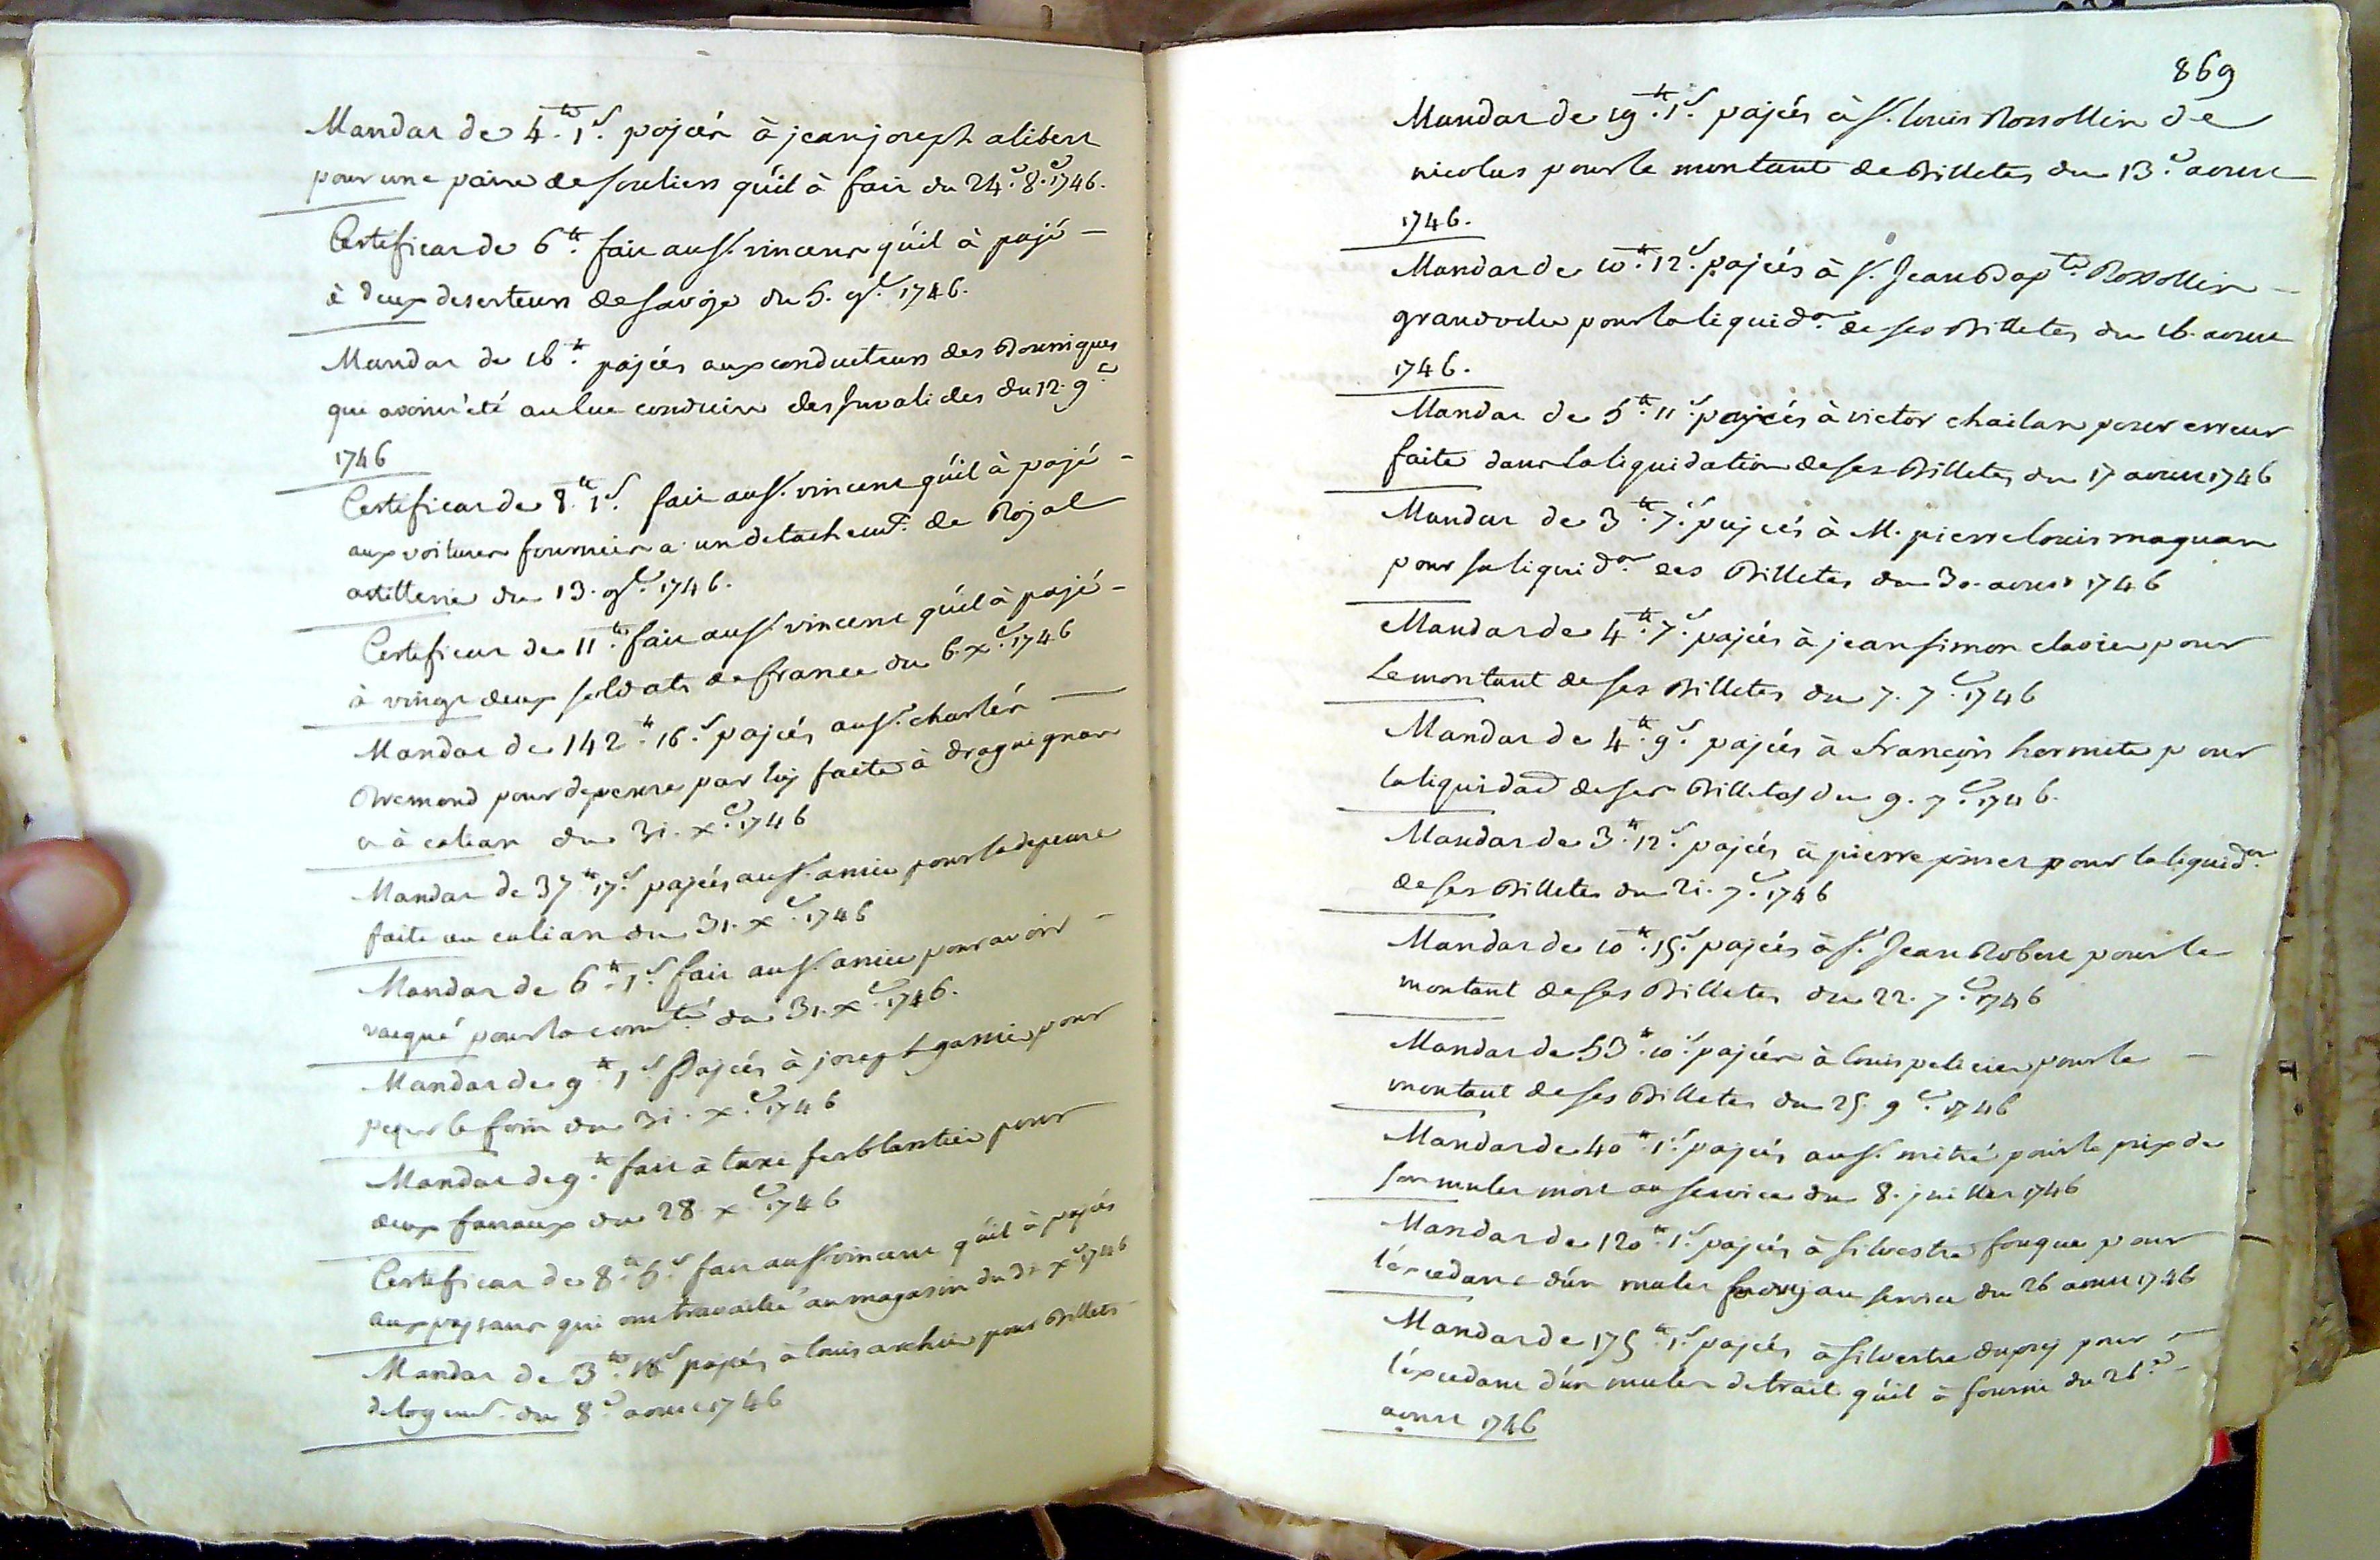 Mandat de 4 ₶. 1 s. pajéés à jean joseph alibert
pour une paire de souliers qu'il à fait du 24e. 8e. 1746.
Certificat de 6 ₶. fait au sr. vincent qu'il à pajé
à deux deserteurs de savoje du 5. 9e. 1746.
Mandat de 16 ₶. pajéés aux conducteurs des Bourriques
qui avoint été au luc conduire des Invalides du 12. 9e
1746
Certificat de 8 ₶. 1 s. fait au sr. vincent qu'il à pajé
aux voitures fournies a un detachemt. de Rojal
artillerie du 13. 9e. 1746.
Certificat de 11 ₶. fait au sr. vincent qu'il à pajé
à vingt deux soldats de france du 6. xe. 1746
Mandat de 142 ₶. 16 s. pajéés au sr. charles
Bremond pour depence par luj faite à draguignan
et à calian du 31. xe. 1746
Mandat de 37 ₶. 17 s. pajéés au sr. amic pour la depence
faite au calian du 31. xe. 1746
Mandat de 6 ₶. 1 s. fait au sr. amic pour avoir
vacqué pour la comté. du 31. xe. 1746.
Mandat de 9 ₶. 1 s. Pajéés à joseph gamie pour
pour le foin du 31. xe. 1746
Mandat de 9 ₶. fait à ferblantier pour
deux fanaux du 28. xe. 1746
Certificat de 8 ₶. 5 s. fait au sr. vincent qu'il à pajés
aux pajsans qui ont travaillé au magasin du xe. 1746
Mandat de 3 ₶. 18 s. pajéés à louis archier pour Billets
de logemt. du 8e. avril 1746
869
Mandat de 19 ₶. 1 s. pajéés à sr. louis Rossollin de
nicolas pour le montant de Billetes du 13e. avril
1746.
Mandat de 10 ₶. 12 s. pajéés à sr. Jean Bapte. Rossollin
pour la liquidon. de ses Billetes du 16. avril
1746.
Mandat de 5 ₶. 11 s. pajéés à victor chailan pour erreur
faite dans la liquidation de ses Billetes du 17 avril 1746
Mandat de 3 ₶. 7 s. pajéés à M. pierre louis magnan
pour sa liquidon. des Billetes du 30. avril 1746
Mandat de 4 ₶. 7 s. pajéés à jean simon clavier pour
Le montant de ses Billetes du 7. 7e. 1746
Mandat de 4 ₶. 9 s. pajéés à françois hermite pour
la liquidaõn de ses Billetes du 9. 7e. 1746.
Mandat de 3 ₶. 12 s. pajéés à pierre pour la liquidon.
de ses Billetes du 21. 7e. 1746
Mandat de 10 ₶. 15 s. pajéés à sr. Jean Robert pour le
montant de ses Billetes du 22. 7e. 1746
Mandat de 53 ₶. 10 s. pajéés à louis pelicier pour le
montant de ses Billetes du 25. 9e. 1746
Mandat de 40 ₶. 1 s. pajéés au sr. mitré pour le prix de
son mulet mort au service du 8. juillet 1746
Mandat de 120 ₶. 1 s. pajéés à silvestre fouque pour
l'éxcedant d'un mulet au service du 26 avril 1746
Mandat de 175 ₶. 1 s. pajéés à silvestre dupuj pour
l'éxcedant d'un mulet de trait qu'il à fourni du 26e.
avril 1746